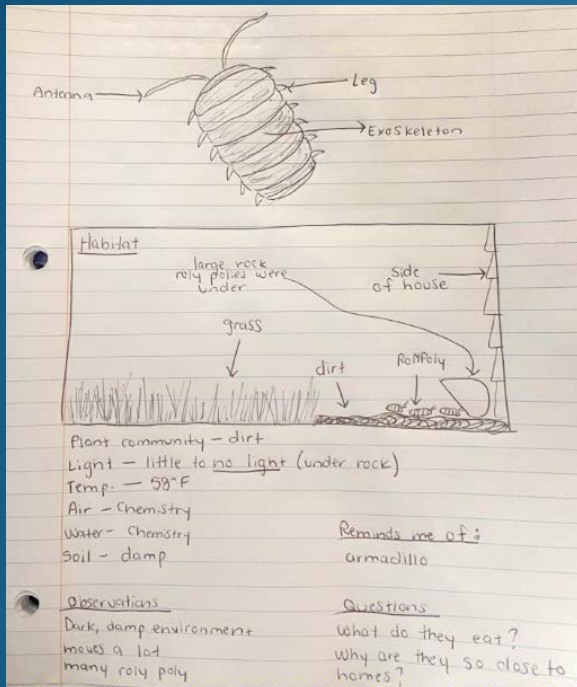 Antenna
Leg
Exoskeleton
Habitat
large rock
roly polies were
under
side
of house
grass
dirt
RollyPoly
Plant community - dirt
Light - little to no light (under rock)
Temp. - 59°F
Air - Chemistry
Water - Chemistry
Soil - damp
Reminds me of:
armadillo
Observations
Dark, damp environment
moves a lot
many roly poly
Questions
What do they eat?
Why are they so close to
homes?